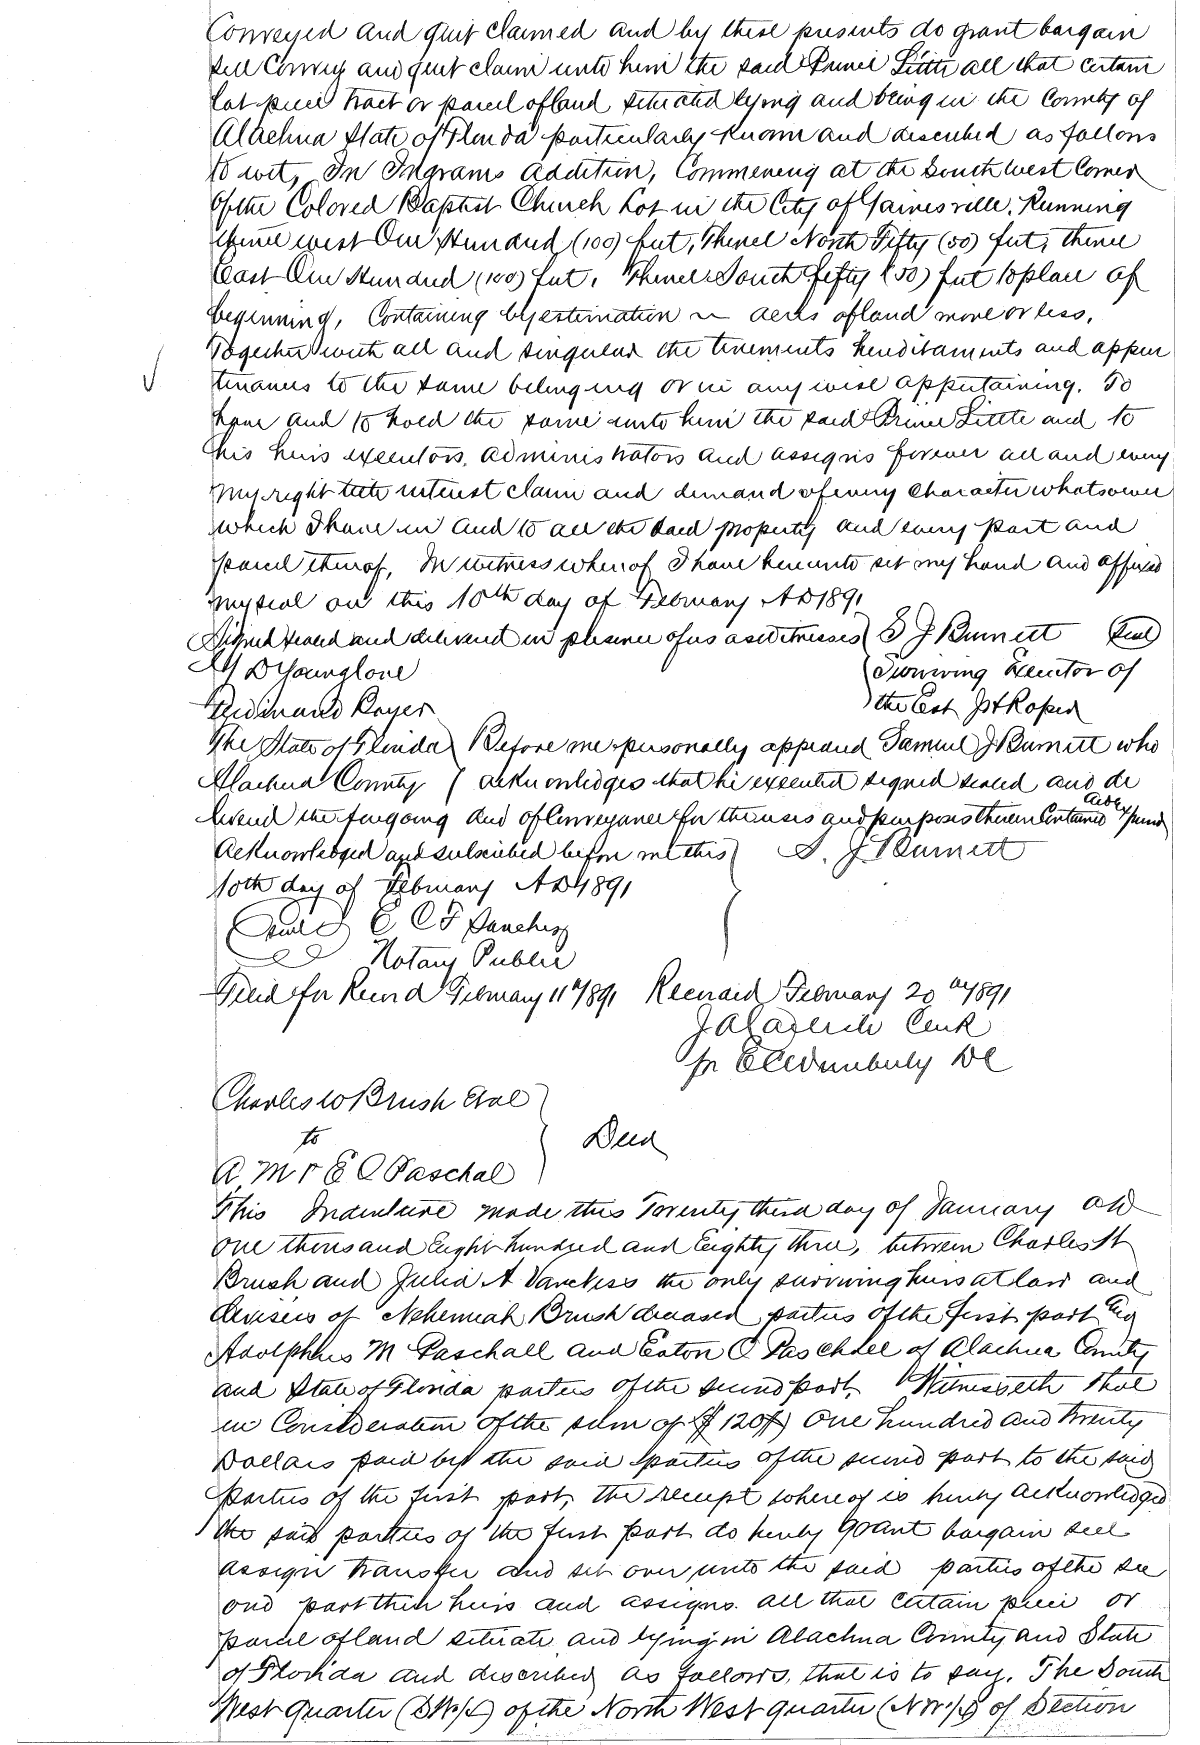 Conveyed and quit claimed and by these presents do grant bargain
sell Convey and quit claim unto him the said Prince Little all that certain
lot piece tract or parcel of land situated lying and being in the County of
Alachua State of Florida particularly known and described as follows
to wit, In Ingrams addition, Commencing at the South west Corner
of the Colored Baptist Church Lot in the City of Gainesville, Running
thence west One Hundred (100) feet, Thence North Fifty (50) feet, thence
East One Hundred (100) feet, Thence South fifty (50) feet to place of
beginning, Containing by estimation ~ acres of land more or less,
Together with all and singular the tenements hereditaments and appur
tenances to the same belonging or in any wise appertaining. To
have and to hold the same unto him the said Prince Little and to
his heirs executors, administrators and assigns forever all and every
my right title interest claim and demand of every character whatsoever
which I have in and to all the said property and every part and
parcel thereof, In witness whereof I have hereunto set my hand and affixed
my seal on this 10th day of February AD 1891
Signed sealed and delivered in presence of us as witnesses S J Burnett Seal
D Younglove Surviving Executor of
Ferdinand Bayer the Est J H Roper
The State of Florida Before me personally appeared Samuel J Burnett who
Alachua County acknowledges that he executed signed sealed and de
livered the foregoing deed of Conveyance for the uses and purposes therein Contained
Acknowledged and subscribed before me this S. J Burnett
10th day of February AD 1891
Seal E C F Sanchez
Notary Public
Filed for Record February 11th 1891 Recorded February 20th 1891
J A Carlisle Clerk
pr DC
Charles W Brush Etal
to Deed
A M & E O Paschal
This Indenture made this Twenty third day of January AD
one thousand Eight hundred and Eighty three, between Charles W
Brush and Julia A Vanckiss the only surviving heirs at law and
devisees of Nehemiah Brush deceased parties of the first part and
Adolphus M Paschall and Eaton O Paschall of Alachua County
and State of Florida parties of the second part, Witnesseth that
in Consideration of the sum of $ 120 One hundred and twenty
Dollars paid by the said parties of the second part to the said
parties of the first part, the receipt whereof is hereby acknowledged
the said parties of the first part do hereby grant bargain sell
assign transfer and set over unto the said parties of the sec
ond part their heirs and assigns all that certain piece or
parcel of land situate and lying in Alachua County and State
of Florida and described as follows, that is to say, The South
West quarter (SW 1/4) of the North West quarter (NW 1/4) of Section